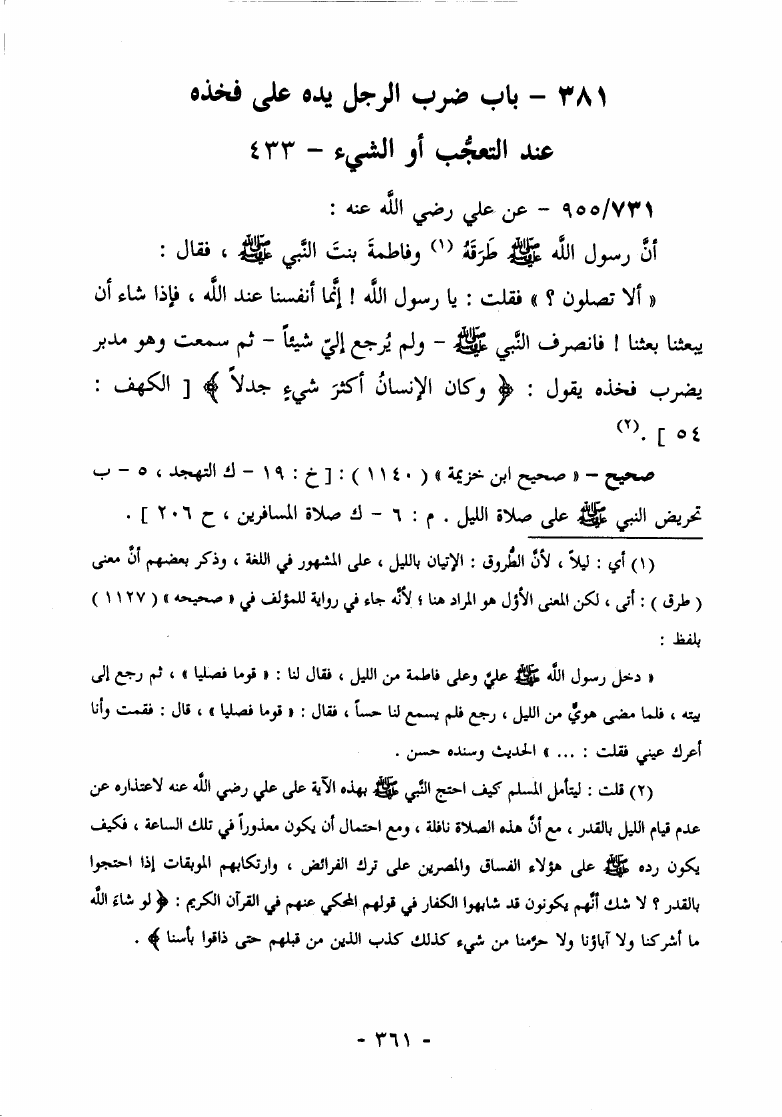 ٣٨١ – باب ضرب الرجل يده على فخذه
عند التعجُّب أو الشيء – ٤٣٣
٩٥٥/٧٣١ – عن علي رضي اللَّه عنه :
أنَّ رسول اللَّه ﷺ طَرَقَهُ (١) وفاطمةَ بنتَ النَّبي ﷺ ، فقال :
« ألا تصلون ؟ » فقلت : يا رسول اللَّه ! إنَّما أنفسنا عند اللَّه ، فإذا شاء أن
يبعثنا بعثنا ! فانصرف النَّبي ﷺ – ولم يُرجع إليّ شيئاً – ثم سمعت وهو مدبر
يضرب فخذه يقول : ﴿ وكان الإنسانُ أكثرَ شيءٍ جدلاً ﴾ [ الكهف :
٥٤ ] .(٢)
صحيح – « صحيح ابن خزيمة » ( ١١٤٠ ) : [ خ : ١٩ – ك التهجد ، ٥ – ب
تحريض النبي ﷺ على صلاة الليل . م : ٦ – ك صلاة المسافرين ، ح ٢٠٦ ] .
(١) أي : ليلاً ، لأنَّ الطُّروق : الإتيان بالليل ، على المشهور في اللغة ، وذكر بعضهم أنَّ معنى
( طرق ) : أتى ، لكن المعنى الأوَّل هو المراد هنا ؛ لأنَّه جاء في رواية للمؤلف في « صحيحه » ( ١١٢٧ )
بلفظ :
« دخل رسول اللَّه ﷺ عليَّ وعلى فاطمة من الليل ، فقال لنا : « قوما فصليا » ، ثم رجع إلى
بيته ، فلما مضى هويٌّ من الليل ، رجع فلم يسمع لنا حساً ، فقال : « قوما فصليا » ، قال : فقمت وأنا
أعرك عيني فقلت : ... » الحديث وسنده حسن .
(٢) قلت : ليتأمل المسلم كيف احتج النَّبي ﷺ بهذه الآية على علي رضي اللَّه عنه لاعتذاره عن
عدم قيام الليل بالقدر ، مع أنَّ هذه الصلاة نافلة ، ومع احتمال أن يكون معذوراً في تلك الساعة ، فكيف
يكون رده ﷺ على هؤلاء الفساق والمصرين على ترك الفرائض ، وارتكابهم الموبقات إذا احتجوا
بالقدر ؟ لا شك أنَّهم يكونون قد شابهوا الكفار في قولهم المحكي عنهم في القرآن الكريم : ﴿ لو شاءَ اللَّه
ما أشركنا ولا آباؤنا ولا حرَّمنا من شيء كذلك كذب الذين من قبلهم حتى ذاقوا بأسنا ﴾ .
- ٣٦١ -